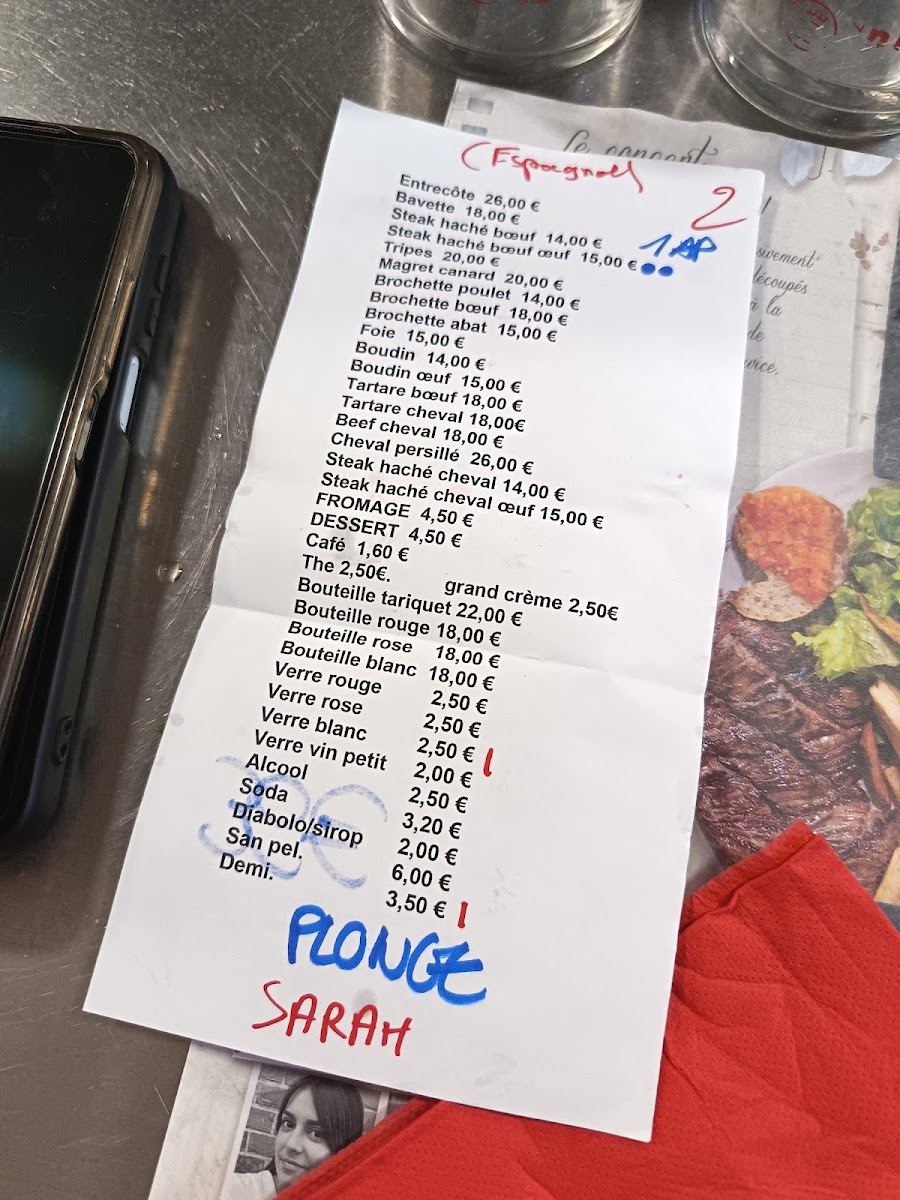 Le concept
(Espagnol)
2
1 AP
Entrecôte 26,00 €
Bavette 18,00 €
Steak haché bœuf 14,00 €
Steak haché bœuf œuf 15,00 €
Tripes 20,00 €
Magret canard 20,00 €
Brochette poulet 14,00 €
Brochette bœuf 18,00 €
Brochette abat 15,00 €
Foie 15,00 €
Boudin 14,00 €
Boudin œuf 15,00 €
Tartare bœuf 18,00 €
Tartare cheval 18,00€
Beef cheval 18,00 €
Cheval persillé 26,00 €
Steak haché cheval 14,00 €
Steak haché cheval œuf 15,00 €
FROMAGE 4,50 €
DESSERT 4,50 €
Café 1,60 €
The 2,50€. grand crème 2,50€
Bouteille tariquet 22,00 €
Bouteille rouge 18,00 €
Bouteille rose 18,00 €
Bouteille blanc 18,00 €
Verre rouge 2,50 €
Verre rose 2,50 €
Verre blanc 2,50 € I
Verre vin petit 2,00 €
Alcool 2,50 €
Soda 3,20 €
Diabolo/sirop 2,00 €
San pel. 6,00 €
Demi. 3,50 € I
PLONGE
SARAH
découpés
à la
de